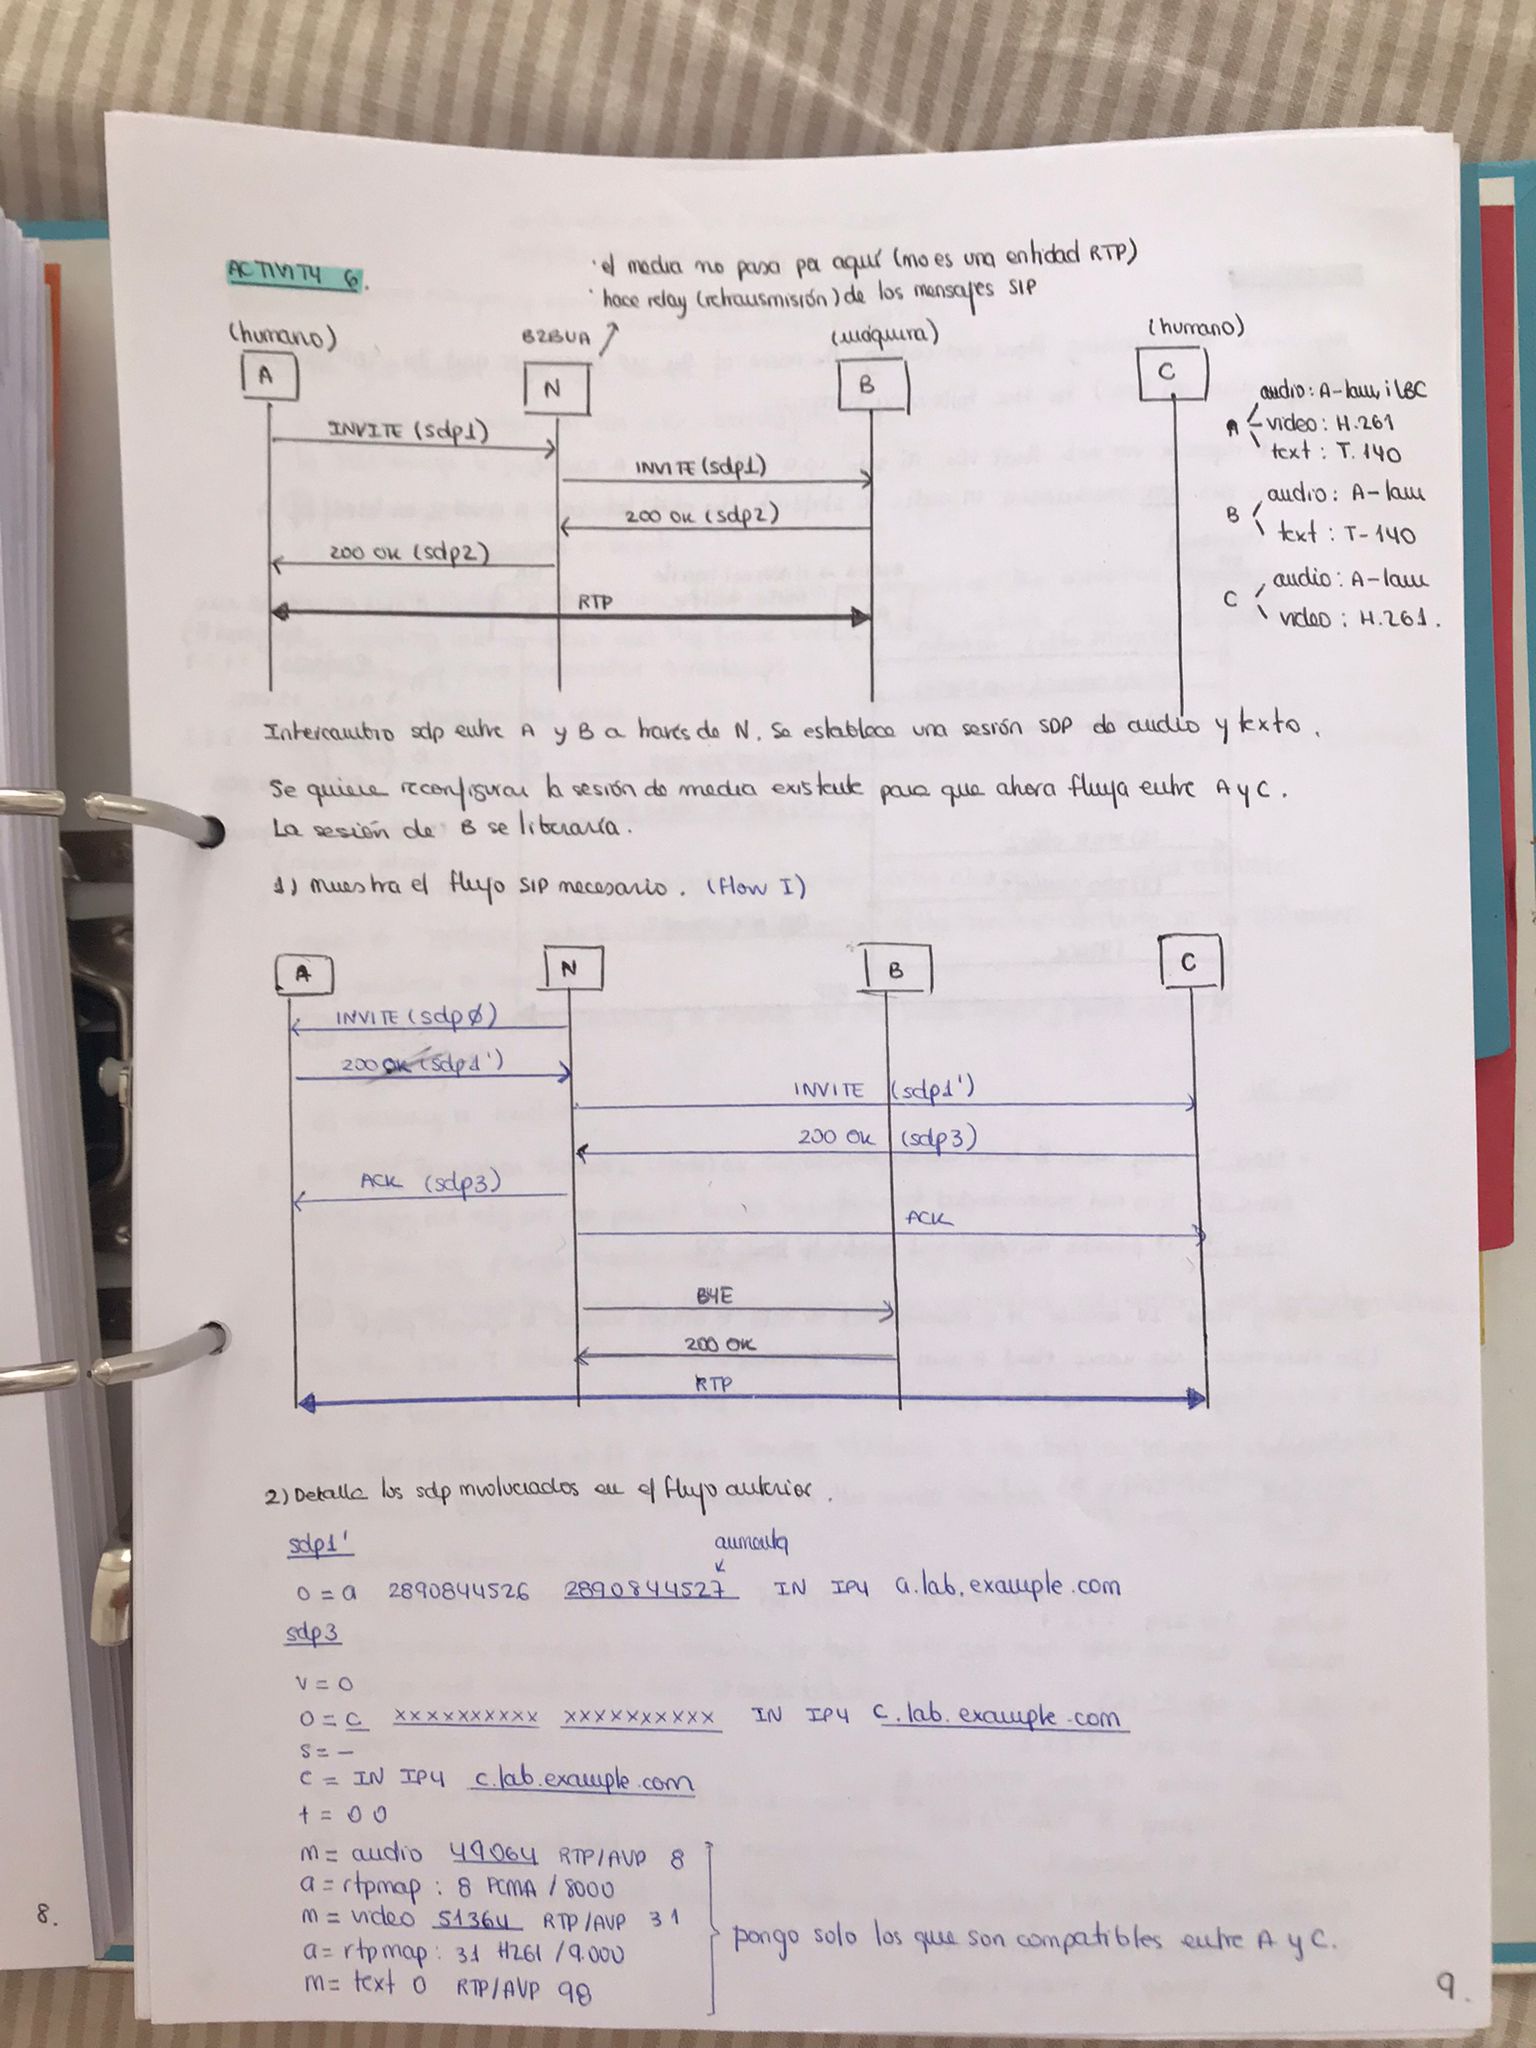 ACTIVITY 6.
· el media no pasa por aquí (no es una entidad RTP)
· hace relay (retransmisión) de los mensajes SIP
(humano) B2BUA (máquina) (humano)
A N B C
INVITE (sdp1)
INVITE (sdp1)
200 OK (sdp2)
200 OK (sdp2)
RTP
A audio: A-law, iLBC
video: H.261
text: T.140
B audio: A-law
text: T-140
C audio: A-law
video: H.261.
Intercambio sdp entre A y B a través de N. Se establece una sesión SDP de audio y texto.
Se quiere reconfigurar la sesión de media existente para que ahora fluya entre A y C.
La sesión de B se liberaría.
1) muestra el flujo SIP necesario. (flow I)
A N B C
INVITE (sdp Ø)
200 OK (sdp1')
INVITE (sdp1')
200 OK (sdp3)
ACK (sdp3)
ACK
BYE
200 OK
RTP
2) Detalle los sdp involucrados en el flujo anterior.
sdp1'
aumenta
o = a 2890844526 2890844527 IN IP4 a.lab.example.com
sdp3
v = 0
o = c xxxxxxxxxx xxxxxxxxxx IN IP4 c.lab.example.com
s = -
c = IN IP4 c.lab.example.com
t = 0 0
m = audio 49064 RTP/AVP 8
a = rtpmap: 8 PCMA / 8000
m = video 51364 RTP/AVP 31
a = rtpmap: 31 H261 / 9.000
m = text 0 RTP/AVP 98
pongo solo los que son compatibles entre A y C.
8.
9.